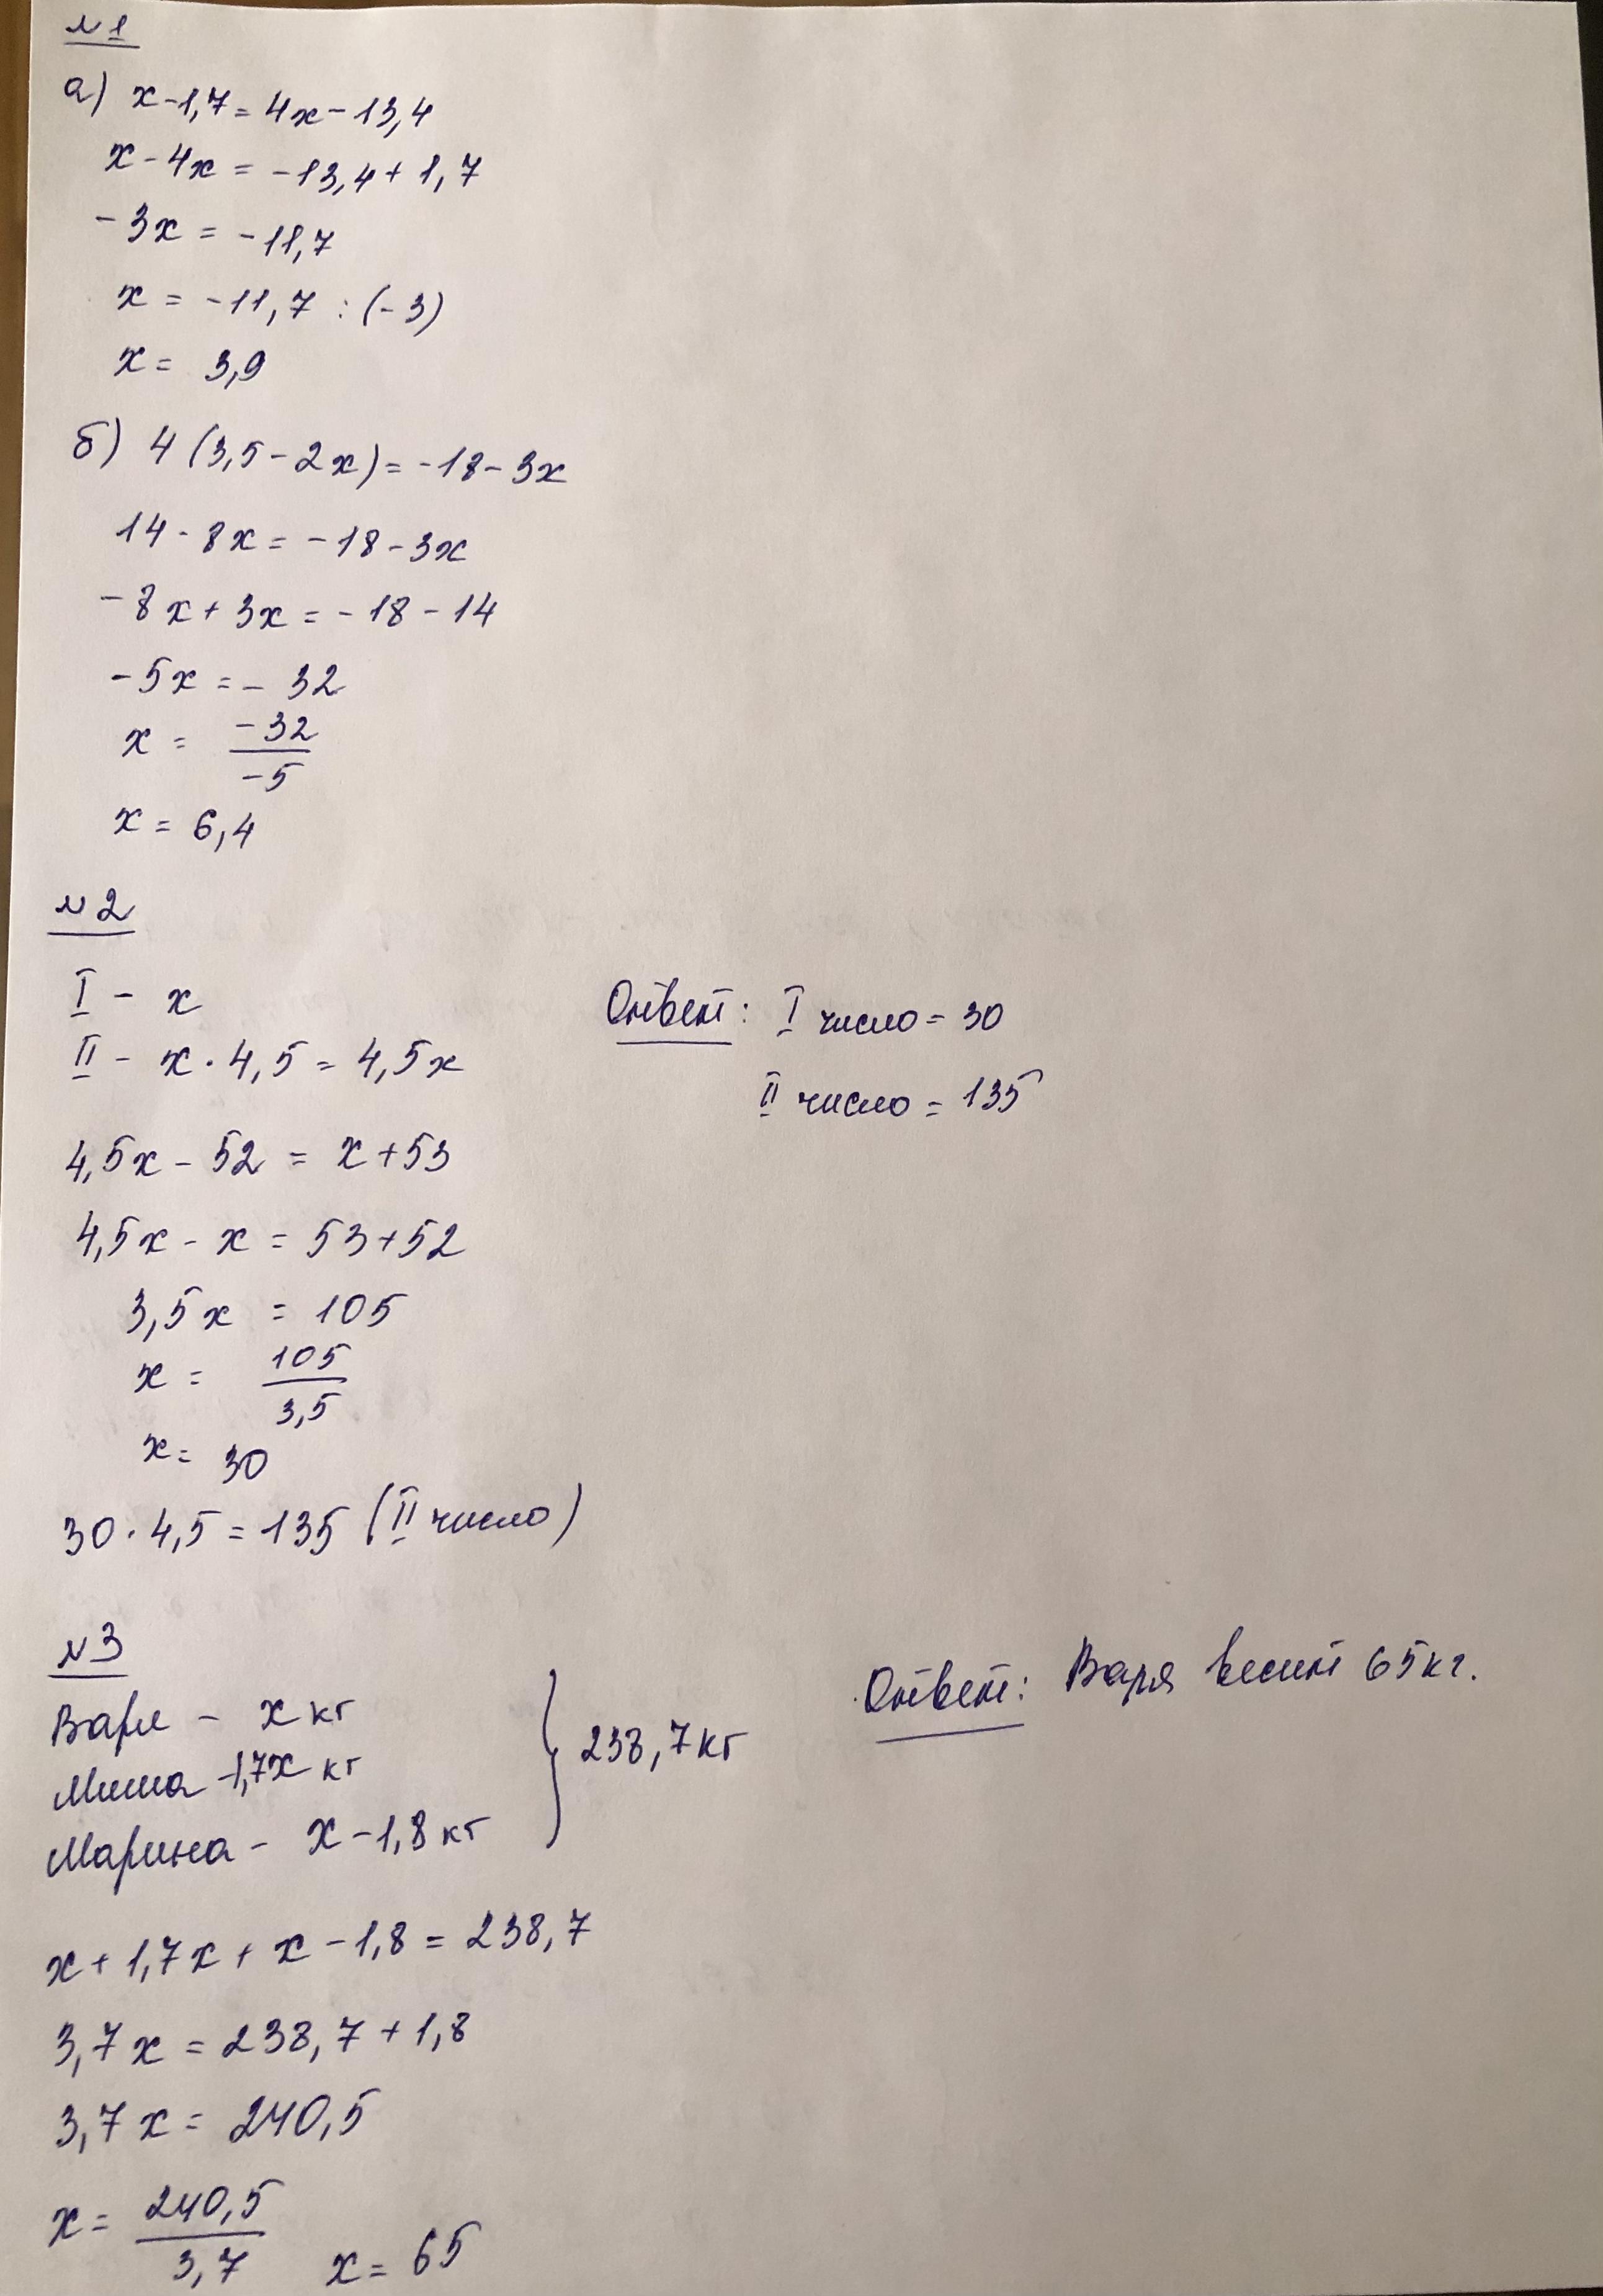 №1
а) x-1,7=4x-13,4
x-4x=-13,4+1,7
-3x=-11,7
x=-11,7:(-3)
x=3,9
б) 4(3,5-2x)=-18-3x
14-8x=-18-3x
-8x+3x=-18-14
-5x=-32
x = -32/-5
x=6,4
№2
I - x
II - x·4,5=4,5x
4,5x-52=x+53
4,5x-x=53+52
3,5x=105
x = 105/3,5
x=30
30·4,5=135 (II число)
Ответ: I число=30
II число=135
№3
Варя - x кг
Миша - 1,7x кг
Марина - x-1,8 кг
238,7кг
x+1,7x+x-1,8=238,7
3,7x=238,7+1,8
3,7x=240,5
x = 240,5/3,7 x=65
Ответ: Варя весит 65кг.